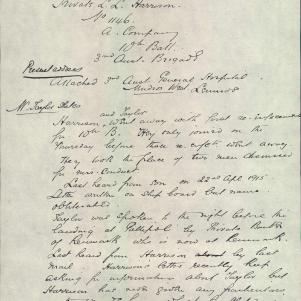 Private L. L. Harrison.
No 1146.
A. Company
10th Batt.
3rd Aust. Brigade
Present address
Attached 3rd Aust. General Hospital
Mudros West Lemnos
Mr Taylor states
and Taylor
Harrison, went away with first re-inforcements
for 10th B. They only joined on the
Thursday before these re-infts went away
They took the place of two men dismissed
for mis-conduct.
Last heard from son on 22nd Apl 1915
Letter written on ship board but name
obliterated.
Taylor was spoken to the night before the
landing at Gallipoli by Private
of Renmark who is now at Renmark.
Last heard from Harrison by last
mail Harrison's letters recently keep
asking for information about Taylor but
Harrison has not given any particulars